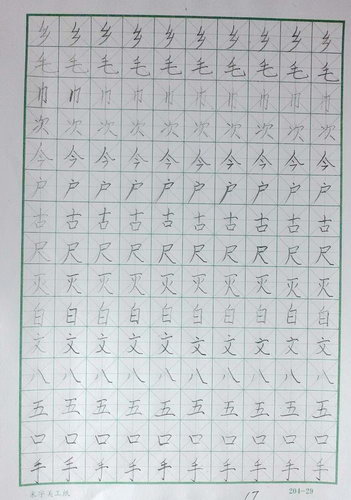 乡乡乡乡乡乡乡乡乡乡
毛毛毛毛毛毛毛毛毛毛
巾巾巾巾巾巾巾巾巾巾
次次次次次次次次次次
今今今今今今今今今今
户户户户户户户户户户
古古古古古古古古古古
尺尺尺尺尺尺尺尺尺尺
灭灭灭灭灭灭灭灭灭灭
白白白白白白白白白白
文文文文文文文文文文
八八八八八八八八八八
五五五五五五五五五五
口口口口口口口口口口
手手手手手手手手手手
17 204-29